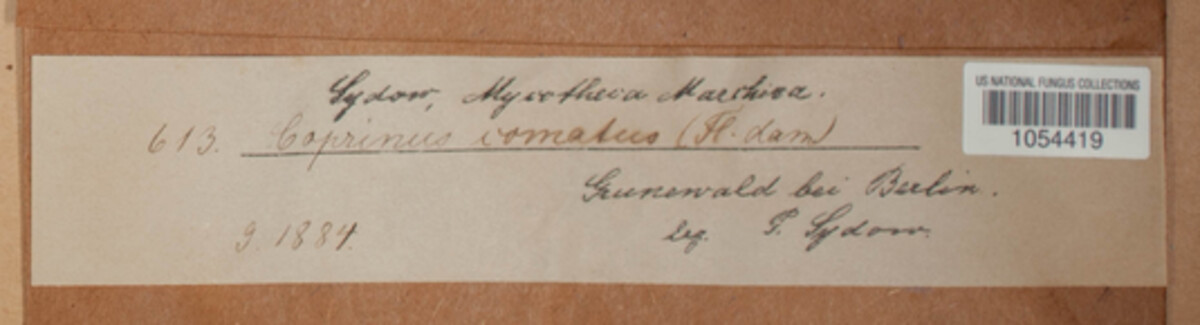 Sydow, Mycotheca Marchica.
613. Coprinus comatus (Fl. dam)
Grunewald bei Berlin.
9. 1884.
leg. P. Sydow.
US NATIONAL FUNGUS COLLECTIONS
1054419